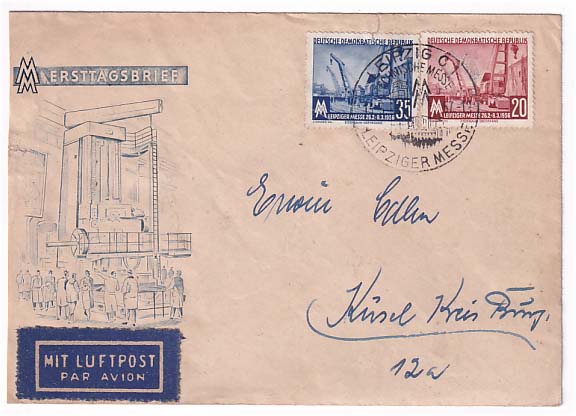 MM ERSTTAGSBRIEF
DEUTSCHE DEMOKRATISCHE REPUBLIK
MM LEIPZIGER MESSE 26.2-8.3.1956 35
DEUTSCHE DEMOKRATISCHE REPUBLIK
MM LEIPZIGER MESSE 26.2-8.3.1956 20
LEIPZIG C1
TECHNISCHE MESSE
LEIPZIGER MESSE
Erwin Edlen
Küsel Kreis Burg.
12a
MIT LUFTPOST
PAR AVION